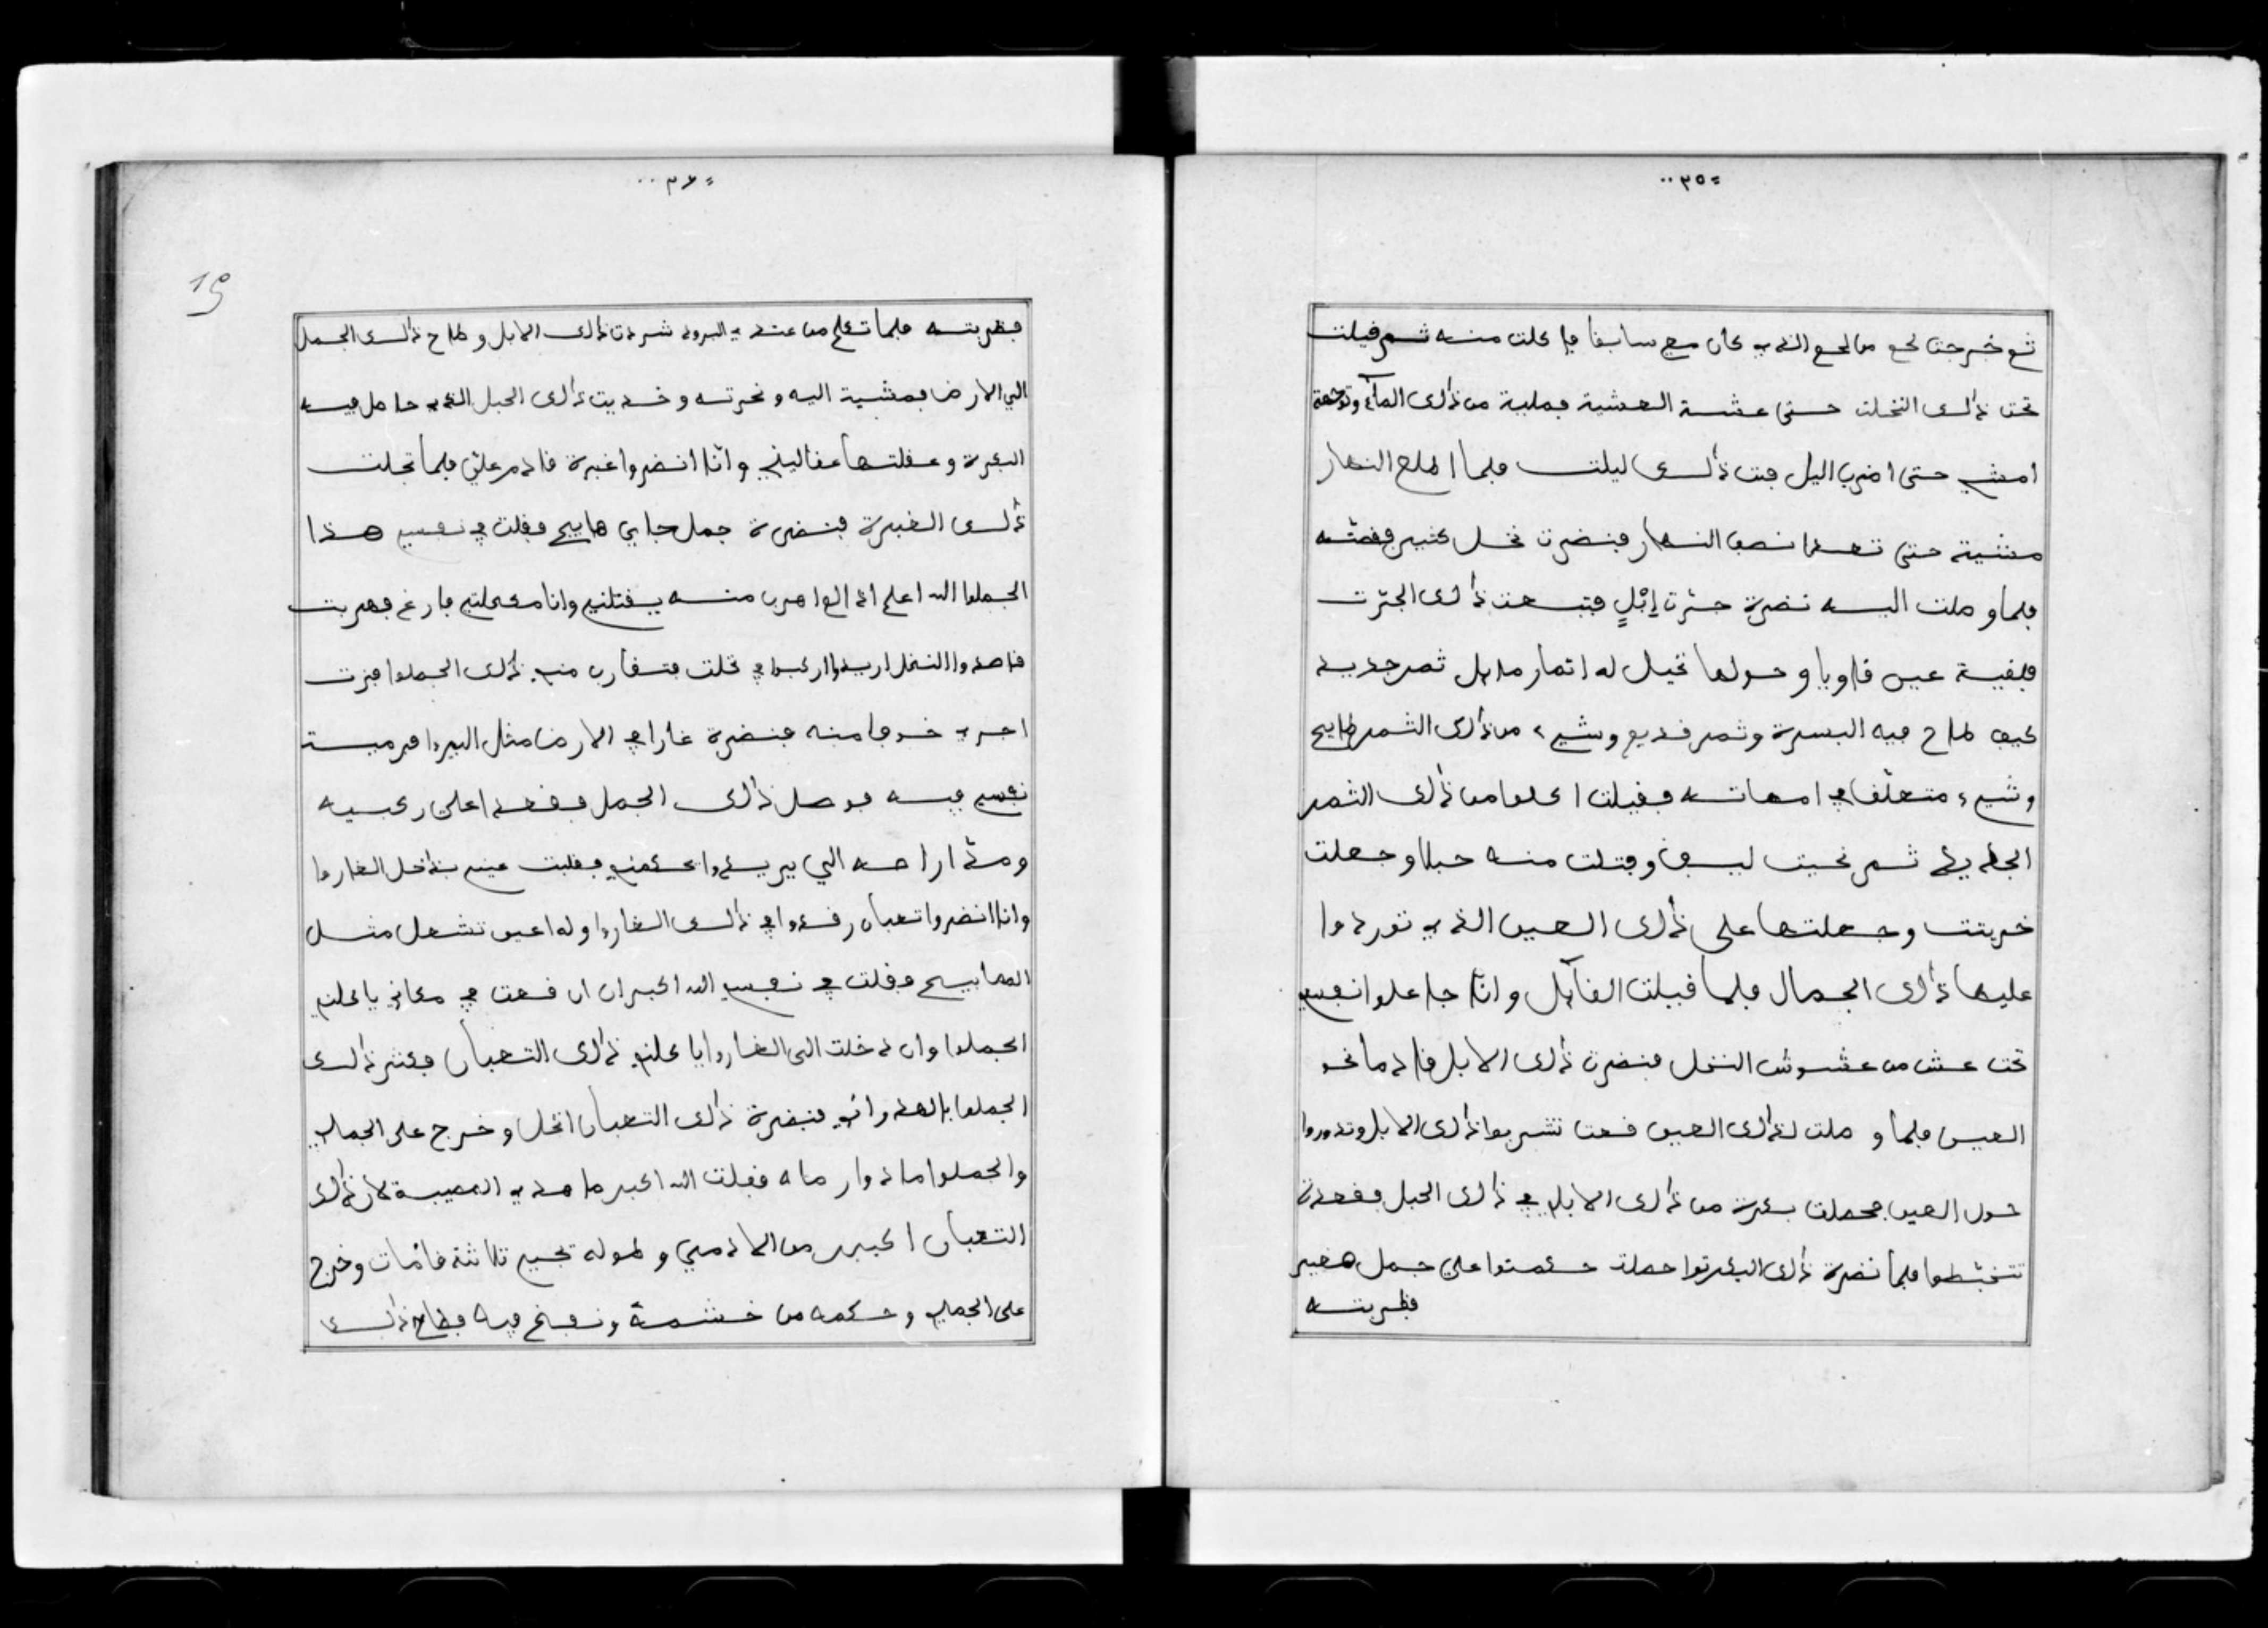 ٣٥
ثم خرجت لحم من لحم الذي كان معي سابقا فاكلت منه ثم فيلت
تحت ذالك النخلت حتى عشت العشية فمليت من ذالك المآء وتوجهة
امشي حتى اضرب اليل فبت ذالك ليلت فلما اطلع النهار
مشية حتى تعدا نصف النهار فنضرت نخل كثير فقصته
فلما وصلت اليه نضرة جرّت إبْلٍ فتبعت ذالك الجرّت
فلفية عين قاويا وحولها نخيل له اتمار مدبل ثمر جديد
كيف طاح فيه البسرة وثمر فديم وشيء من ذالك الثمر طايح
وشيء متعلّق في امهاته فقيلت اكلوا من ذالك الثمر
الجديد ثم نحيت ليف وفتلت منه حبلا وجعلت
خريتت وجعلتها على ذالك العين الذي توردوا
عليها ذالك الجمال فلما فيلت الفآيل وانّا جاعلوا نفسي
تحت عش من عشوش النخل فنضرت ذالك الابل قادما نحو
العين فلما وصلت لذالك العين فعت تشربوا ذالك الابل وتدوروا
حول العين فحصلت بكرة من ذالك الابل في ذالك الحبل فقعدة
تتخبّطوا فلما نضرة ذالك البكرتوا حصلت حكمتوا على جمل صغير
فظربته
٣٦
19
فظربته فلما تكلم من عنده البرود شردت ذالك الابل وطاح ذالك الجمل
الي الارض فمشية اليه ونحرته وخديت ذالك الحبل الذي حاصل فيه
البكرة وعفلتها عفاليني وانّا انضروا غبرة قادم علي فلما نجلت
ذالك الغبرة فنضرة جمل جاي هايج فقلت في نفسي هذا
الجملوا الله اعلم اذا لم اهرب منه يفتلني وانا مكحلتي فارغ فهربت
قاصدوا النخل اريدوا اركبوا في نخلت فتفارب مني ذالك الجملوا فزت
اجري خوفا منه فنضرة غارا في الارض مثل البيروا فرميت
نفسي فيه فوصل ذالك الجمل فقعد اعلى ركبيه
ومدّ اراصه الي يريدوا يحكمني فقلبت عيني بداخل الغاروا
وانا انضروا تعبان رفدوا في ذالك الغاروا وله اعين تشعل مثل
المصابيح فقلت في نفسي الله اكبر ان ان فعت في مكاني ياكلني
الجملوا وان دخلت الى الغاروا ياكلني ذالك التعبان فكثر ذالك
الجملوا بالهدراني فنضرة ذالك التعبان انحل وخرج على الجمل
والجملوا مادوار ماه فقلت الله اكبر ما هدي المصيبة لان ذالك
التعبان اكبر من الادمي وطوله تجي تلاثة فامات وخرج
على الجمل وحكمه من خشمة ونفخ فيه فطاح ذالك